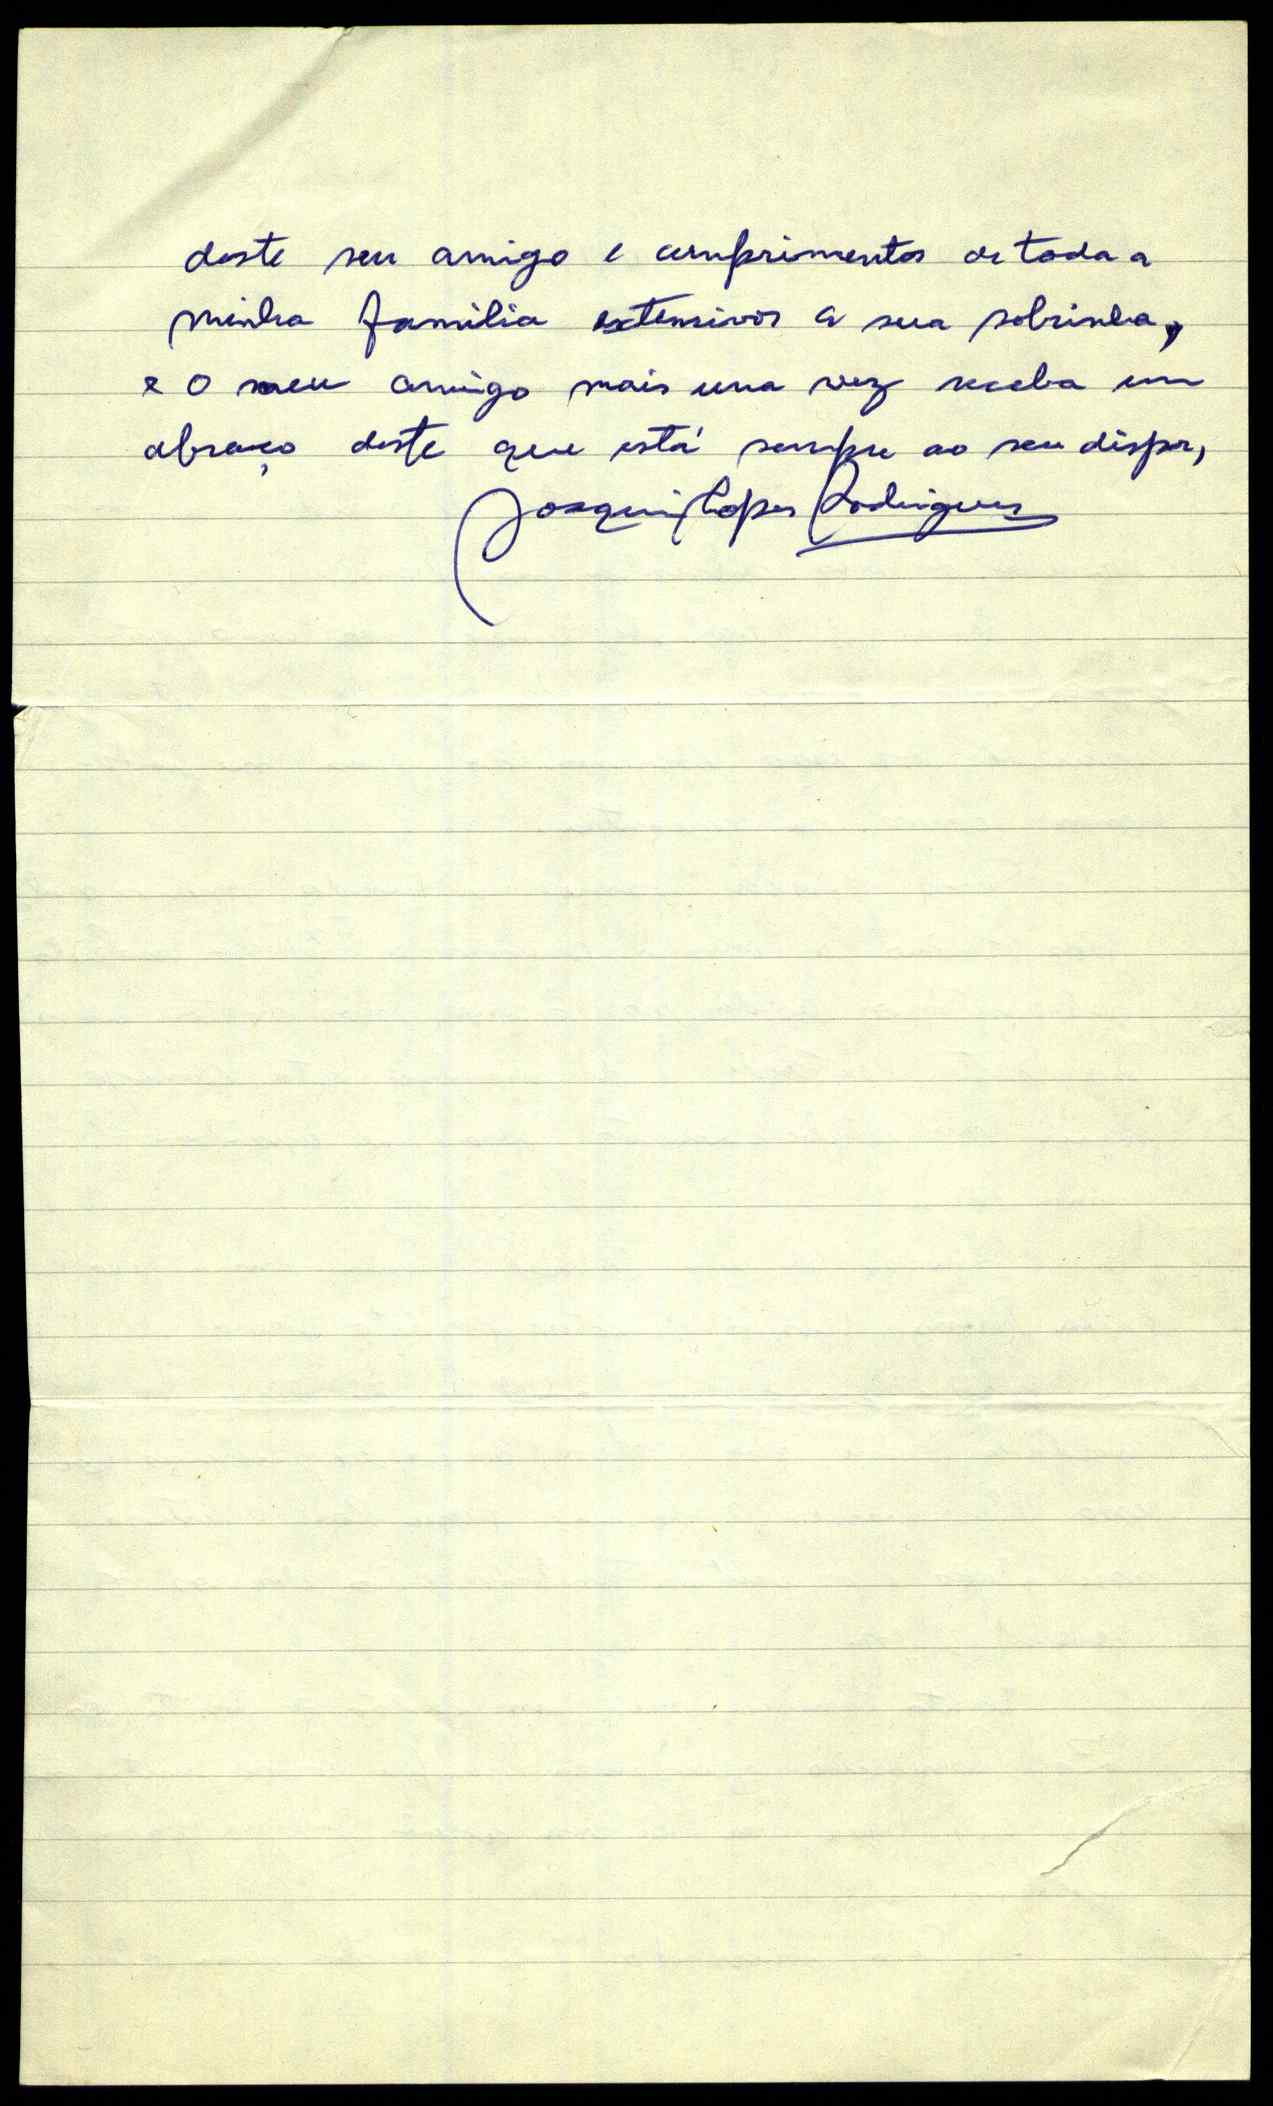 deste seu amigo e cumprimentos de toda a
minha família extensivos a sua sobrinha,
e o meu amigo mais uma vez receba um
abraço deste que está sempre ao seu dispor,
Joaquim Lopes Rodrigues